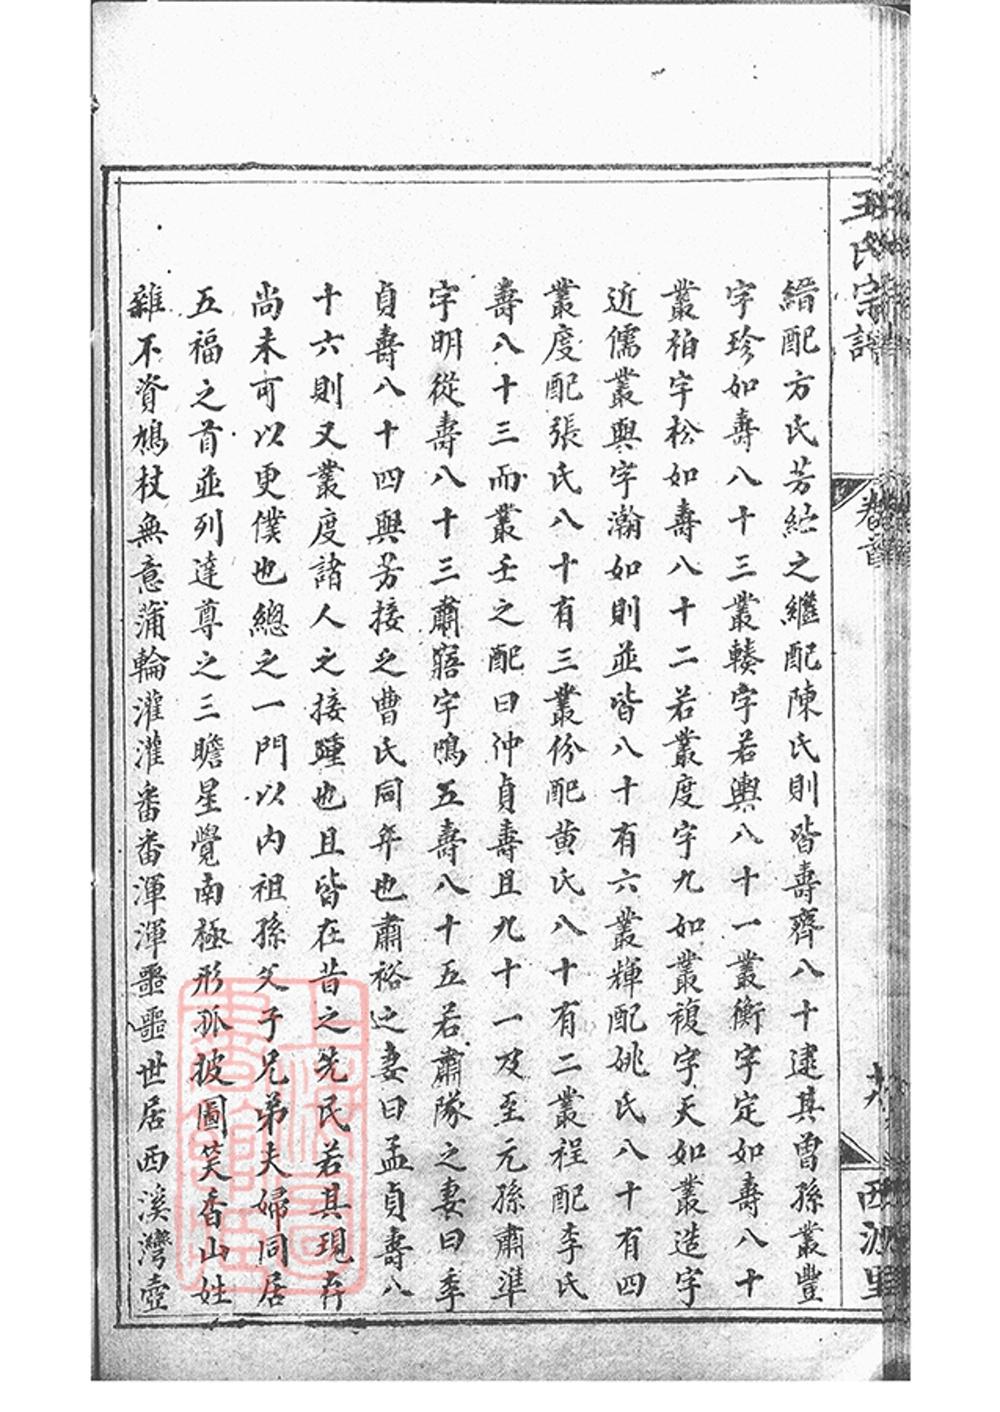 王氏宗譜
卷首
西溪里
縉配方氏芳紝之繼配陳氏則皆壽齊八十逮其曾孫叢豐
字珍如壽八十三叢輳字若輿八十一叢衡字定如壽八十
叢袙字松如壽八十二若叢度字九如叢複字天如叢造字
近儒叢輿字瀚如則並皆八十有六叢輝配姚氏八十有四
叢度配張氏八十有三叢份配黃氏八十有二叢程配李氏
壽八十三而叢壬之配曰沖貞壽且九十一及至元孫肅準
字明從壽八十三肅寤字鳴五壽八十五若肅隊之妻曰季
貞壽八十四與芳接之曹氏同年也肅裕之妻曰孟貞壽八
十六則又叢度諸人之接踵也且皆在昔之先民若其現存
尚未可以更僕也總之一門以內祖孫父子兄弟夫婦同居
五福之首並列達尊之三瞻星覺南極形孤披圖笑香山姓
雜不資鳩杖無意蒲輪灌灌番番渾渾噩噩世居西溪灣壺
上海圖書館藏